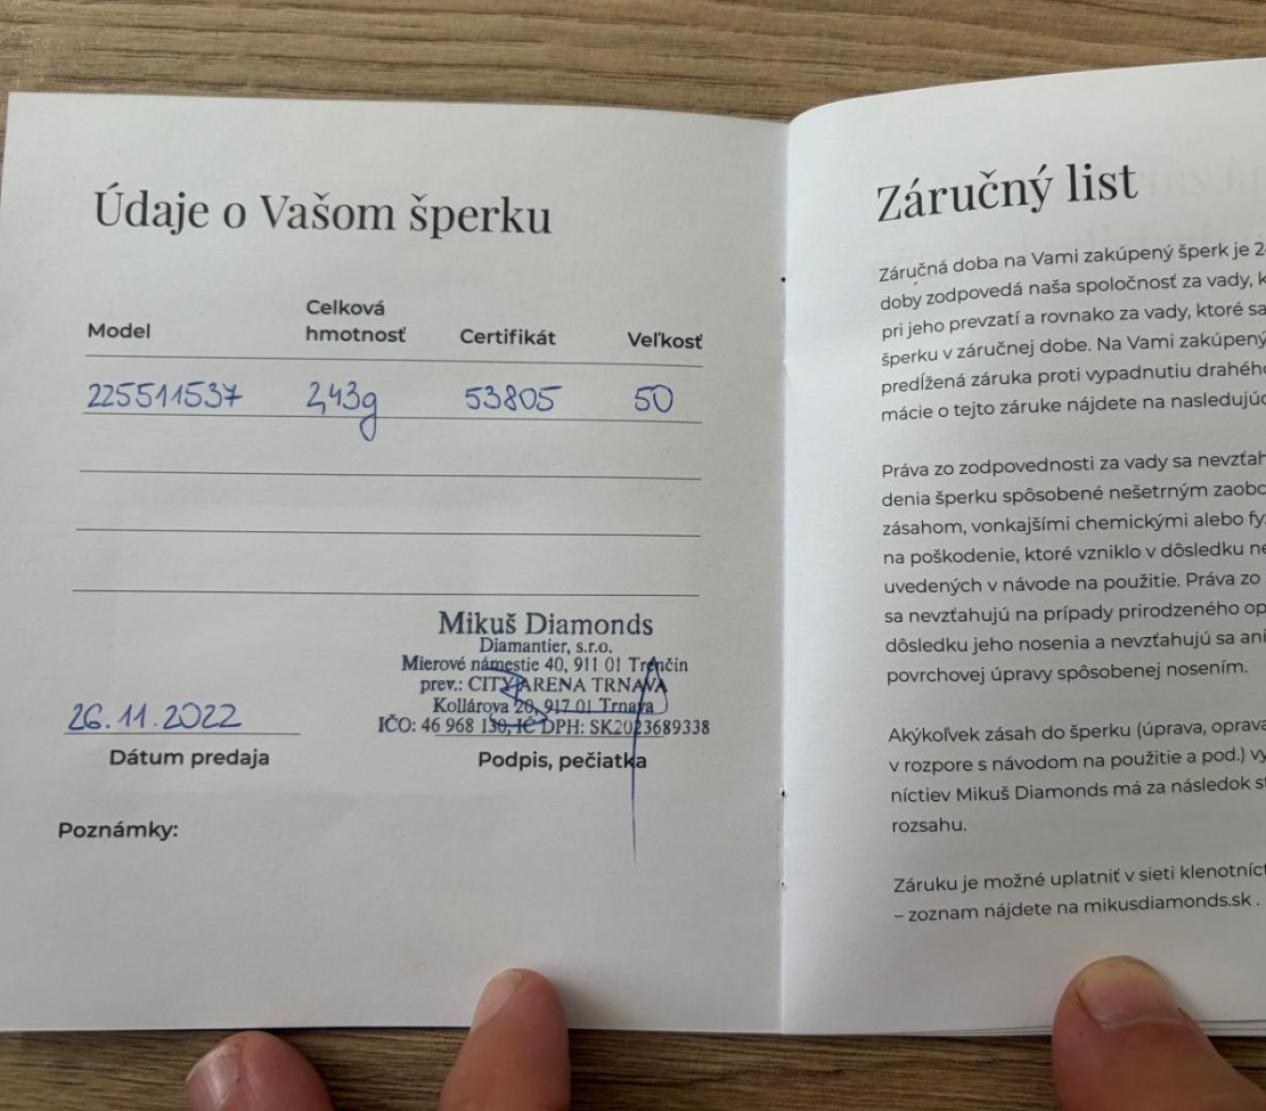 Údaje o Vašom šperku
Model
Celková
hmotnosť
Certifikát
Veľkosť
225511537 2,43g 53805 50
Mikuš Diamonds
Diamantier, s.r.o.
Mierové námestie 40, 911 01 Trenčin
prev.: CITY ARENA TRNAVA
Kollárova 20, 917 01 Trnava
IČO: 46 968 130, IČ DPH: SK2023689338
26.11.2022
Dátum predaja
Podpis, pečiatka
Poznámky:
Záručný list
Záručná doba na Vami zakúpený šperk je
doby zodpovedá naša spoločnosť za vady,
pri jeho prevzatí a rovnako za vady, ktoré
šperku v záručnej dobe. Na Vami zakúpený
predĺžená záruka proti vypadnutiu
mácie o tejto záruke nájdete na
Práva zo zodpovednosti za vady sa
denia šperku spôsobené nešetrným
zásahom, vonkajšími chemickými alebo
na poškodenie, ktoré vzniklo v dôsledku
uvedených v návode na použitie. Práva zo
sa nevzťahujú na prípady prirodzeného
dôsledku jeho nosenia a nevzťahujú sa ani
povrchovej úpravy spôsobenej nosením.
Akýkoľvek zásah do šperku (úprava, oprava
v rozpore s návodom na použitie a pod.)
níctiev Mikuš Diamonds má za následok
rozsahu.
Záruku je možné uplatniť v sieti
– zoznam nájdete na mikusdiamonds.sk .